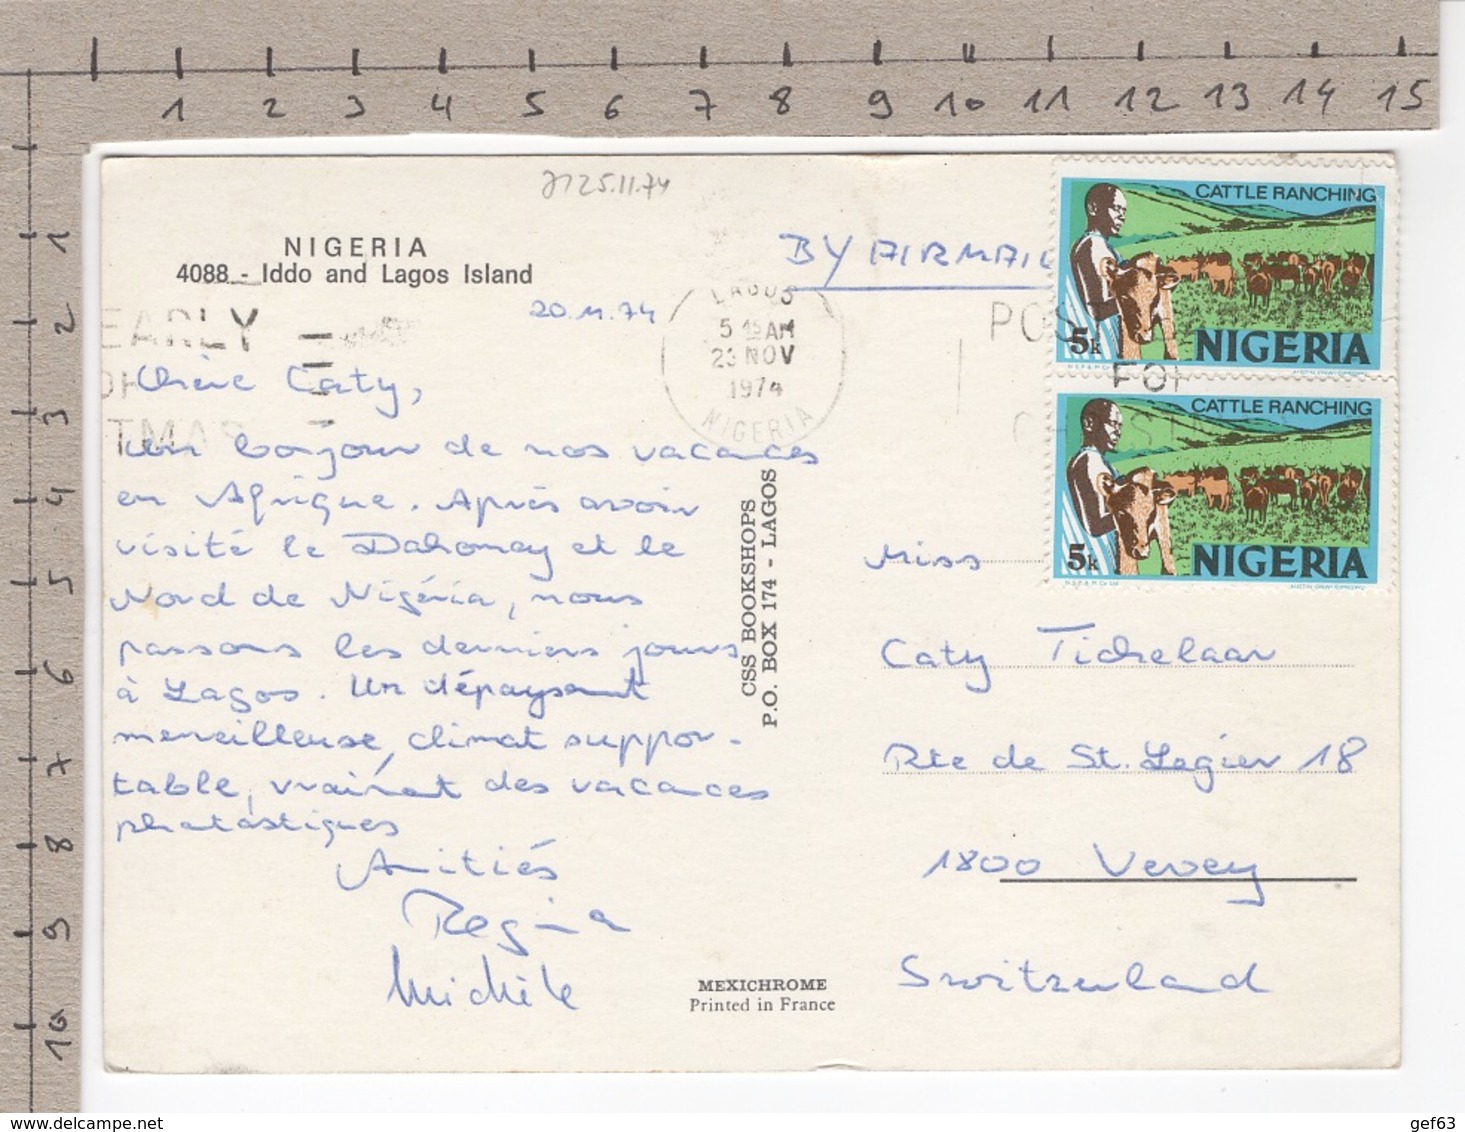 1 2 3 4 5 6 7 8 9 10 11 12 13 14 15
1
2
3
4
5
6
7
8
9
10
25.11.74
NIGERIA
4088 - Iddo and Lagos Island
20.11.74
EARLY
TMAS
Chère Caty,
un bonjour de nos vacances
en Afrique. Après avoir
visité le Dahomey et le
Nord de Nigéria, nous
passons les derniers jours
à Lagos. Un dépaysement
merveilleuse, climat suppor-
table, vraiment des vacances
phatastiques
Amitiés
Regina
Michèle
CSS BOOKSHOPS
P.O. BOX 174 - LAGOS
MEXICHROME
Printed in France
BY AIRMAIL
LAGOS
5 15AM
23 NOV
1974
NIGERIA
POST
FOR
CHRISTMAS
CATTLE RANCHING
5k NIGERIA
CATTLE RANCHING
5k NIGERIA
Miss
Caty Tichelaar
Rte de St. Légier 18
1800 Vevey
Switzerland
delcampe.net
gef63